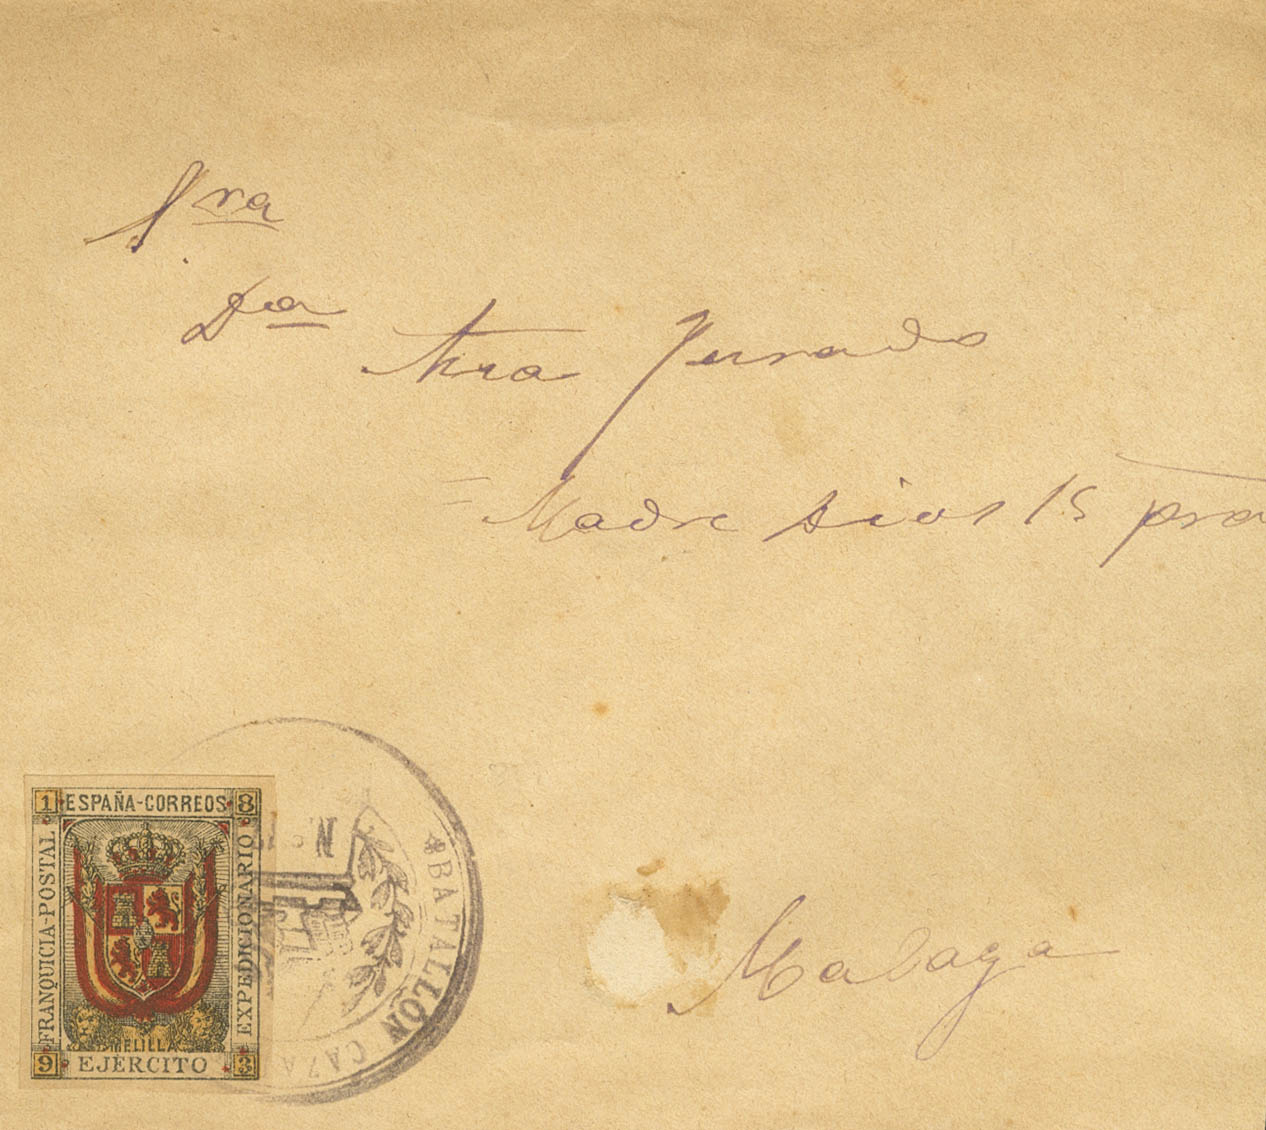 Sra
Da Ana Jurado
= Madre Dios 15 pra
Malaga
1 ESPAÑA-CORREOS 8
FRANQUICIA-POSTAL
EXPEDICIONARIO
MELILLA
9 EJÉRCITO 3
BATALLÓN CAZA
N